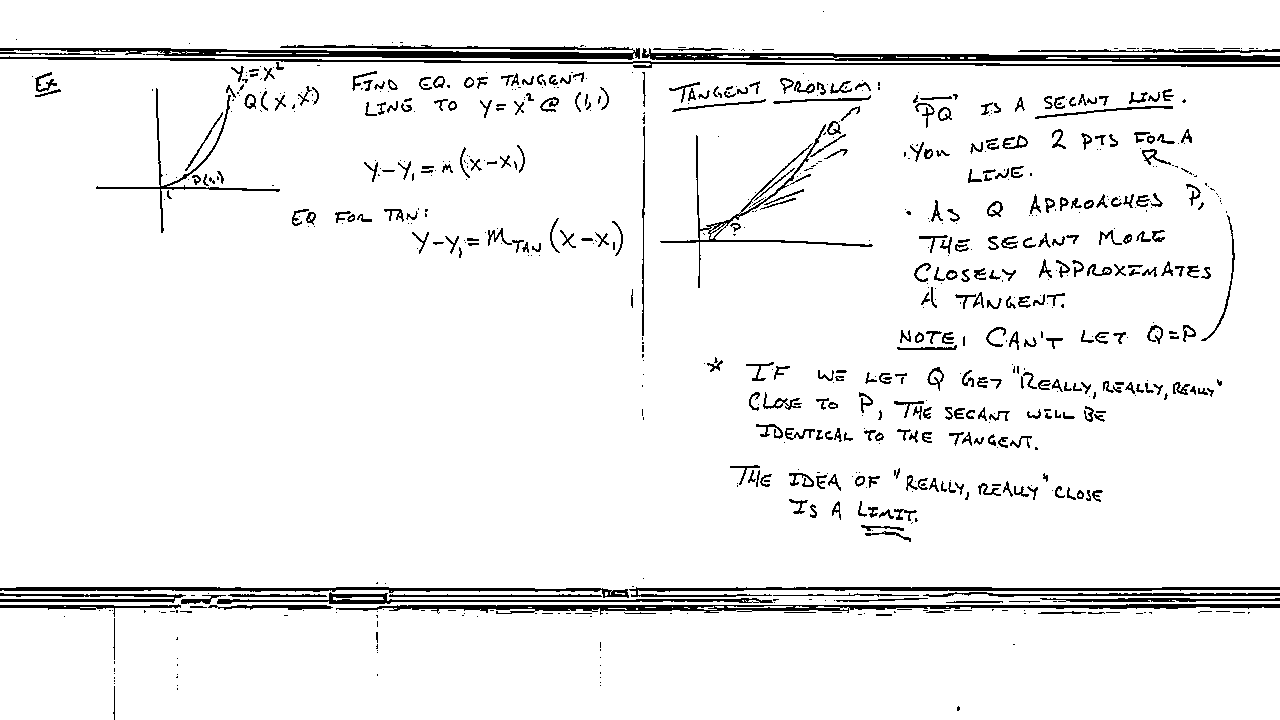 Ex
Y=X²
Q(X,X²)
P(1,1)
1
FIND EQ. OF TANGENT
LINE TO Y=X² @ (1,1)
Y-Y₁=m(X-X₁)
EQ FOR TAN:
Y-Y₁=m_TAN(X-X₁)
TANGENT PROBLEM:
Q
P
PQ IS A SECANT LINE.
·YOU NEED 2 PTS FOR A
LINE.
· AS Q APPROACHES P,
THE SECANT MORE
CLOSELY APPROXIMATES
A TANGENT.
NOTE: CAN'T LET Q=P
* IF WE LET Q GET "REALLY, REALLY, REALLY"
CLOSE TO P, THE SECANT WILL BE
IDENTICAL TO THE TANGENT.
THE IDEA OF "REALLY, REALLY" CLOSE
IS A LIMIT.